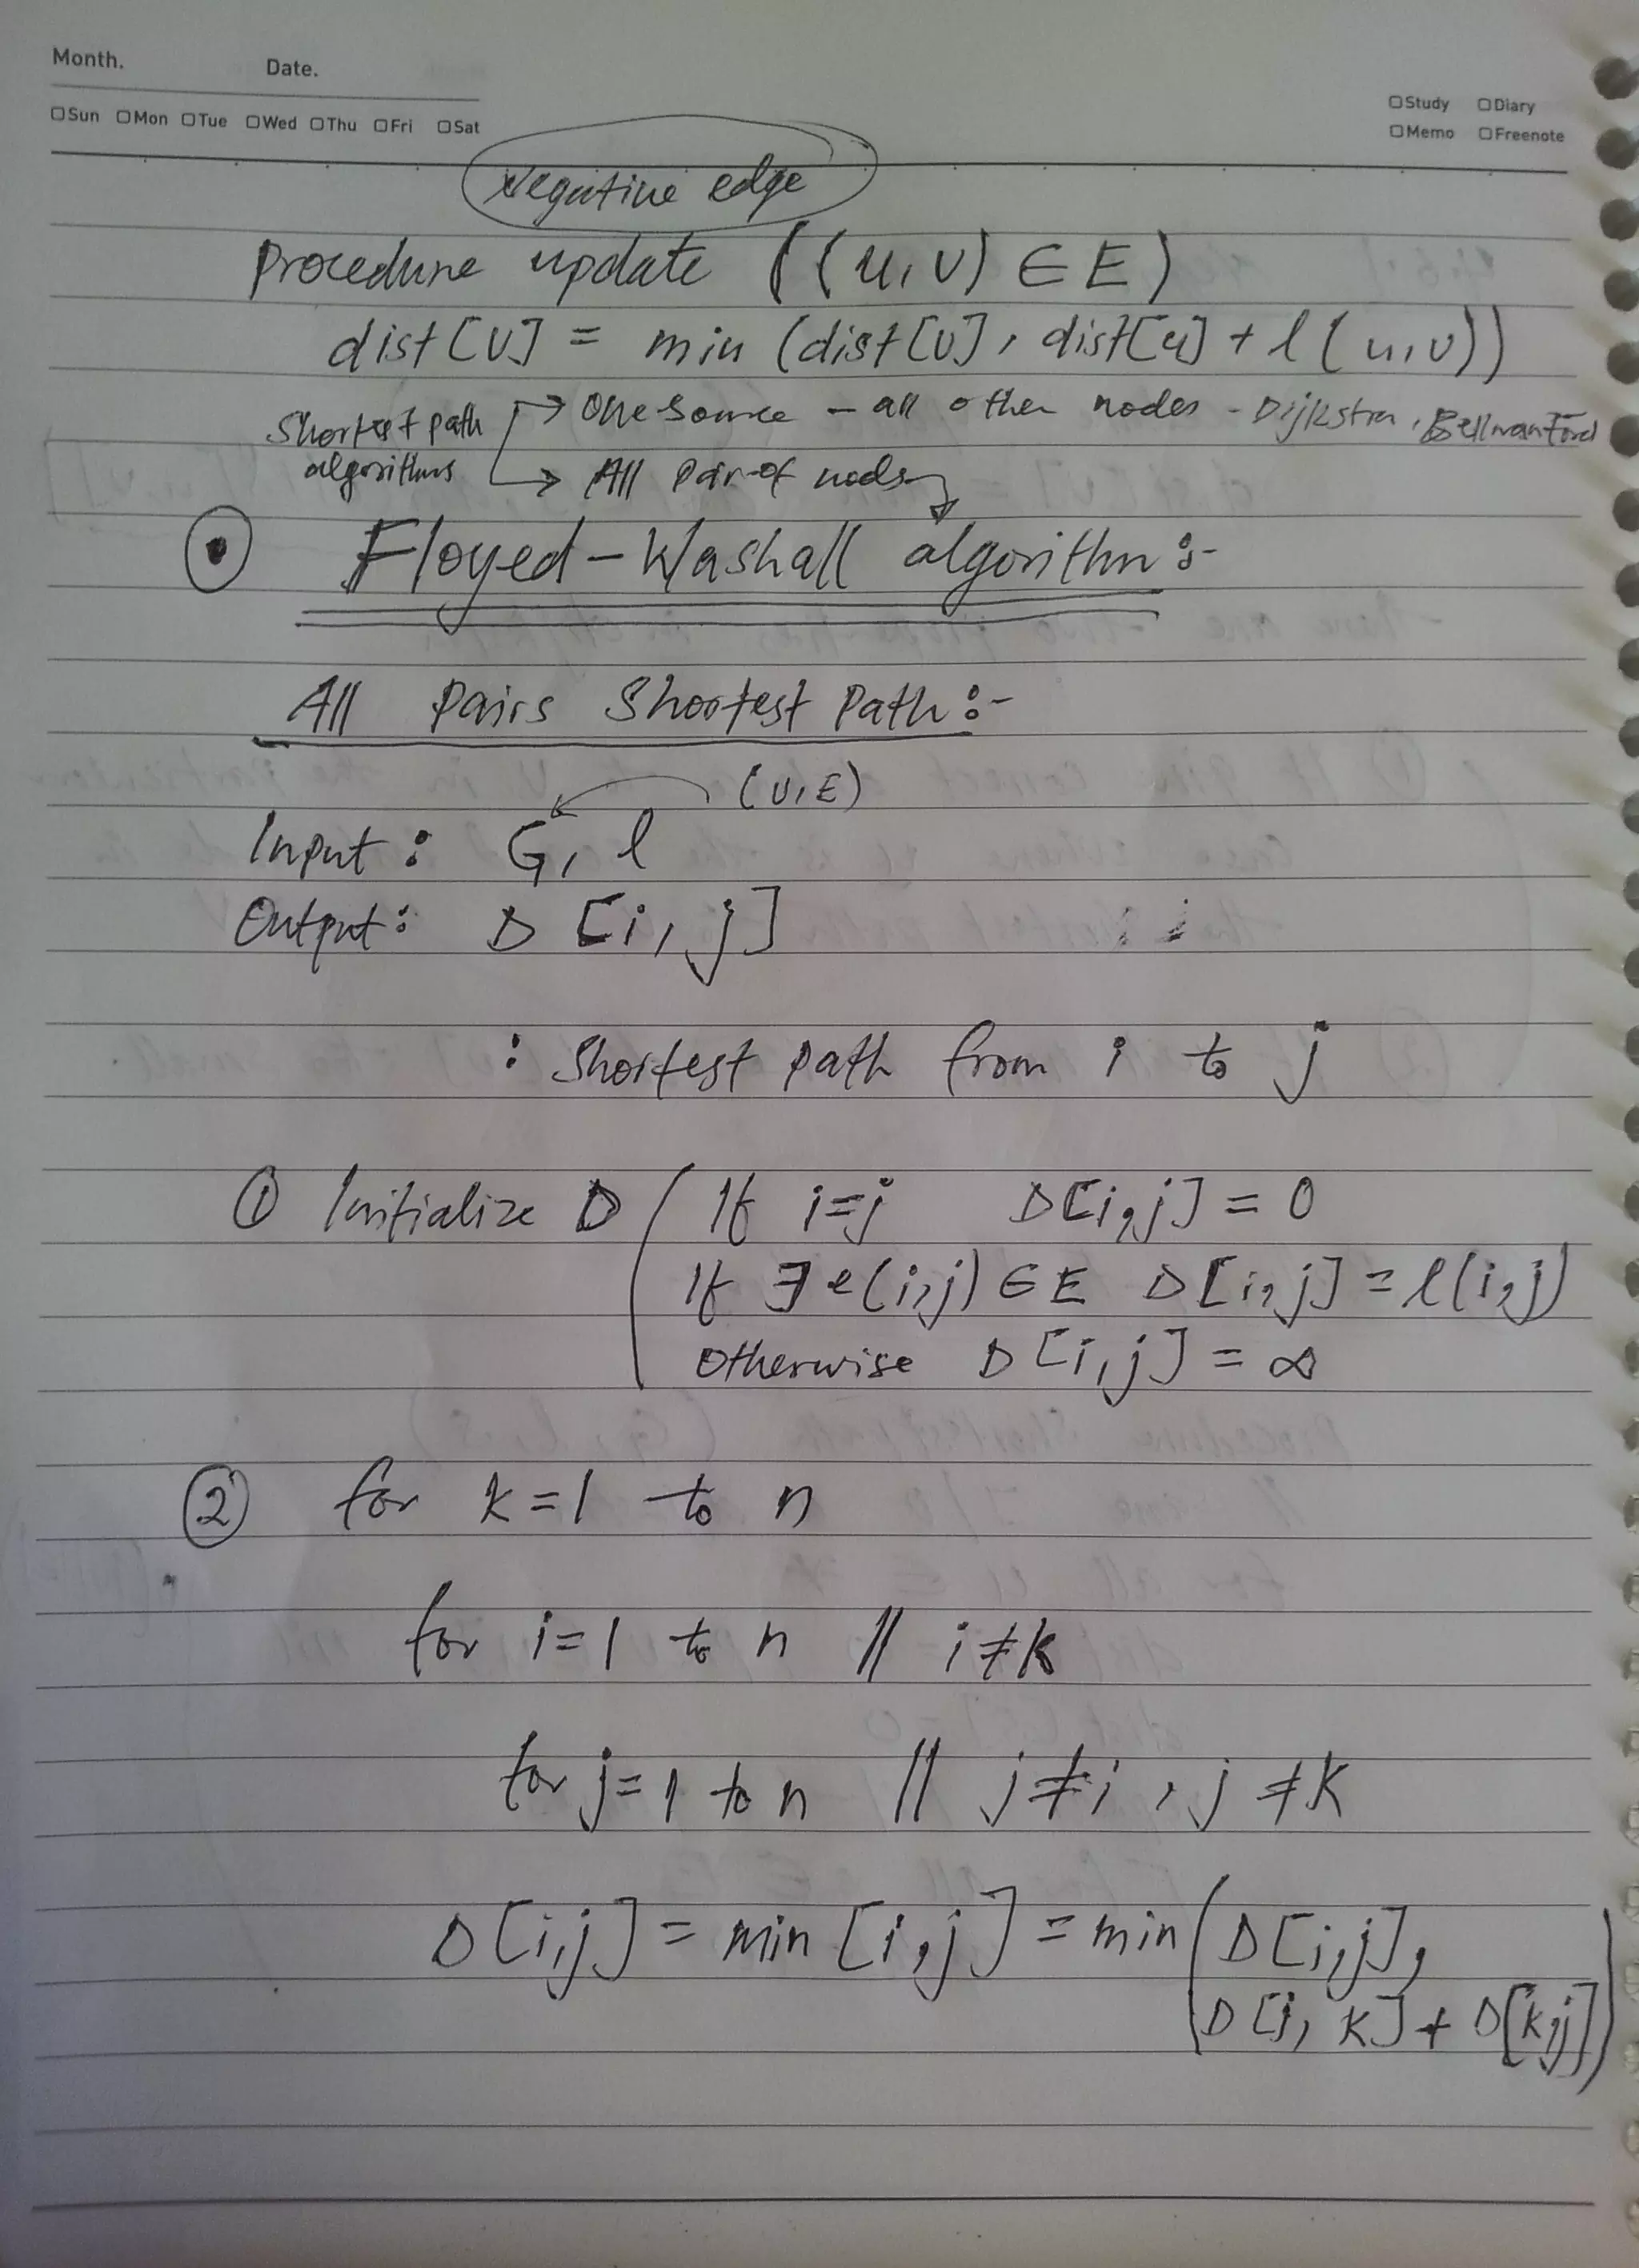 Month. Date.
□Sun □Mon □Tue □Wed □Thu □Fri □Sat
□Study □Diary
□Memo □Freenote
Negative edge
procedure update ((u,v) ∈ E)
dist[v] = min (dist[v], dist[u] + l(u,v))
Shortest path algorithms
→ One source - all other nodes - Dijkstra, Bellman Ford
→ All pair of nodes
Floyed-Washall algorithm:-
All pairs shortest path:-
(V,E)
Input: G, l
Output: D [i, j]
: Shortest path from i to j
① Initialize D ( If i=j D[i,j] = 0
If ∃ e(i,j) ∈ E D[i,j] = l(i,j)
otherwise D[i,j] = ∞
② for k=1 to n
for i=1 to n // i≠k
for j=1 to n // j≠i, j≠k
D[i,j] = min [i,j] = min( D[i,j],
D[i,k] + D[k,j])